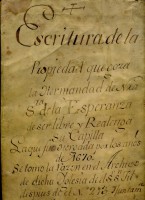 Escritura de la
Propiedad que goza
la Hermandad de Nra
Sra de la Esperanza
de ser libre y Realenga
su Capilla
La que fue otorgada por los años
de 1670
Se tomó la razon en el Archivo
de dicha Iglesia